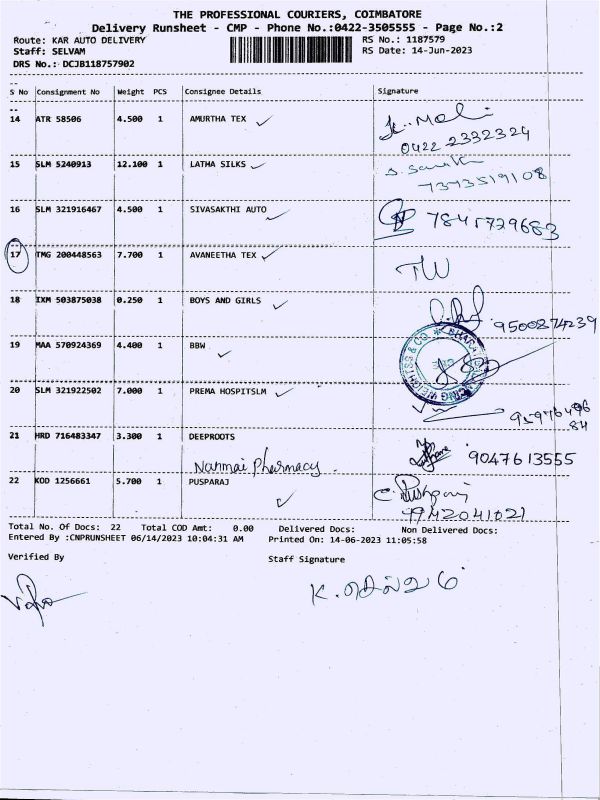 THE PROFESSIONAL COURIERS, COIMBATORE
Delivery Runsheet - CMP - Phone No.:0422-3505555 - Page No.:2
Route: KAR AUTO DELIVERY RS No.: 1187579
Staff: SELVAM RS Date: 14-Jun-2023
DRS No.: DCJB118757902
S No Consignment No Weight PCS Consignee Details Signature
14 ATR 58506 4.500 1 AMURTHA TEX
0422 2332324
15 SLM 5240913 12.100 1 LATHA SILKS
7373519108
16 SLM 321916467 4.500 1 SIVASAKTHI AUTO 7845729683
17 TMG 200448563 7.700 1 AVANEETHA TEX TW
18 IXM 503875038 0.250 1 BOYS AND GIRLS 9500874239
19 MAA 570924369 4.400 1 BBW
20 SLM 321922502 7.000 1 PREMA HOSPITSLM
21 HRD 716483347 3.300 1 DEEPROOTS 9047613555
Pharmacy.
22 KOD 1256661 5.700 1 PUSPARAJ
9942041021
Total No. Of Docs: 22 Total COD Amt: 0.00 Delivered Docs: Non Delivered Docs:
Entered By :CNPRUNSHEET 06/14/2023 10:04:31 AM Printed On: 14-06-2023 11:05:58
Verified By Staff Signature